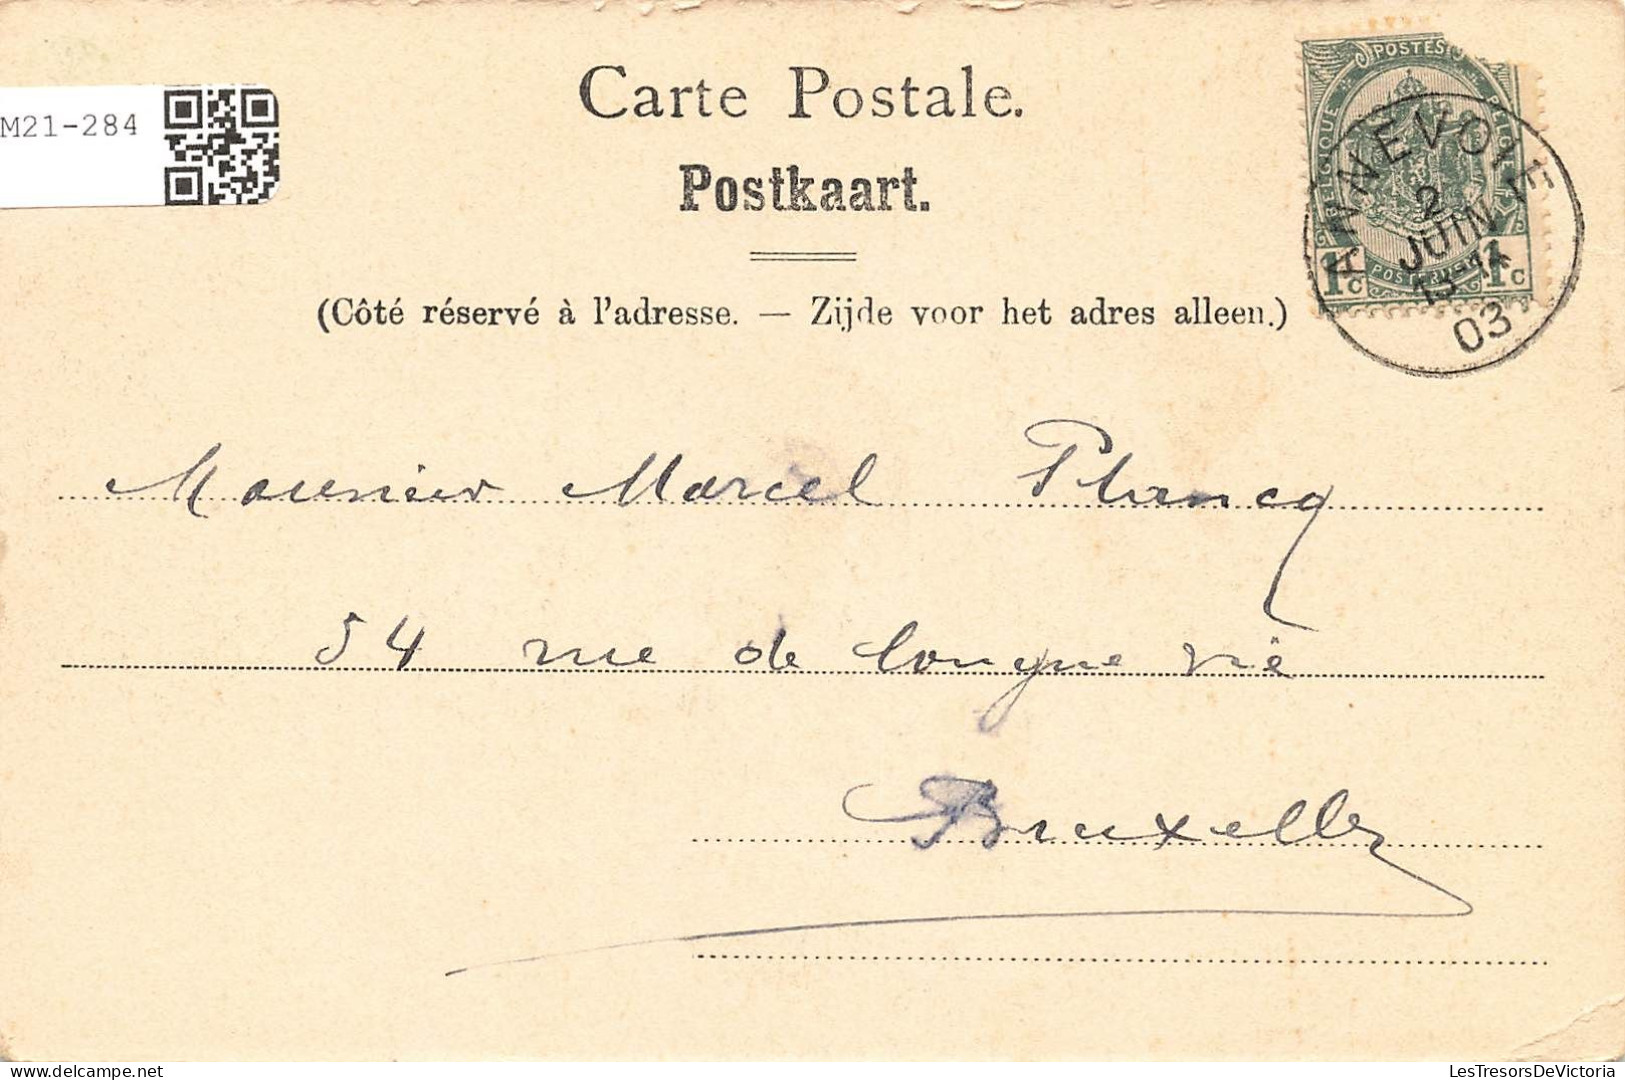 M21-284
Carte Postale.
Postkaart.
(Côté réservé à l'adresse. — Zijde voor het adres alleen.)
POSTES
BELGIQUE
1 C
1 C
ANNEVOIE
2
JUIN
03
Monsieur Marcel Plancq
54 rue de longue vie
Bruxelles
delcampe.net
LesTresorsDeVictoria